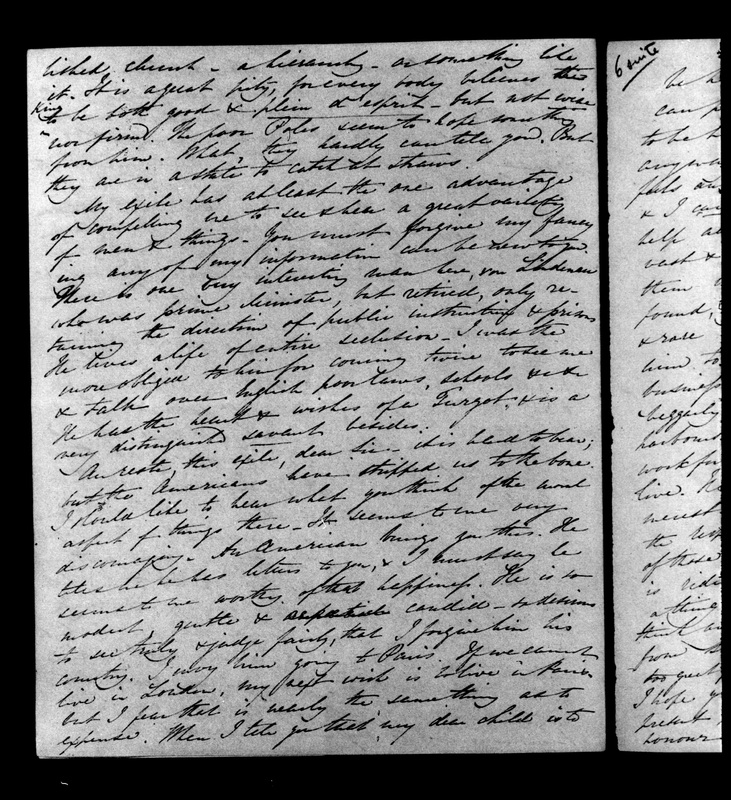 lished church - a hierarchy - or something like
it. It is a great pity, for every body believes the
King to be both good & plein d'esprit - but not wise
nor firm. The poor Poles seem to hope something
from him. What, they hardly can tell you. But
they are in a state to catch at straws.
My exile has at least the one advantage
of compelling me to see & hear a great variety
of men & things - You must forgive my fancy
ing any of my information can be new to you.
There is one very interesting man here, von Lindenau
who was prime Minister, but retired, only re-
taining the direction of public instruction & prisons
He lives a life of entire seclusion - I was the
more obliged to him for coming twice to see me
& talk over English poor laws, schools &c &c
He has the heart & wishes of a Turgot, & is a
very distinguished savant besides.
Au reste, this exile, dear Sir - it is hard to bear;
but the Americans have stripped us to the bone.
I should like to hear what you think of the moral
aspect of things there - It seems to me very
discouraging. An American brings you this. He
tells me he has letters to you, & I must say he
seems to me worthy of that happiness. He is so
modest, gentle & candid - so desirous
to see truly & judge fairly, that I forgive him his
country. I envy him going to Paris. If we cannot
live in London, my next wish is to live in Paris
but I fear that is nearly the same thing as to
expense. When I tell you that my dear child is to
6 suite
be
can p
to be h
any
falls
& I can
help
vast &
them
found,
& rare
him to
business
beggarly
harbours
work for
live. He
nearest
the
of these
is
a thing
think
from
too
I hope y
present
honour